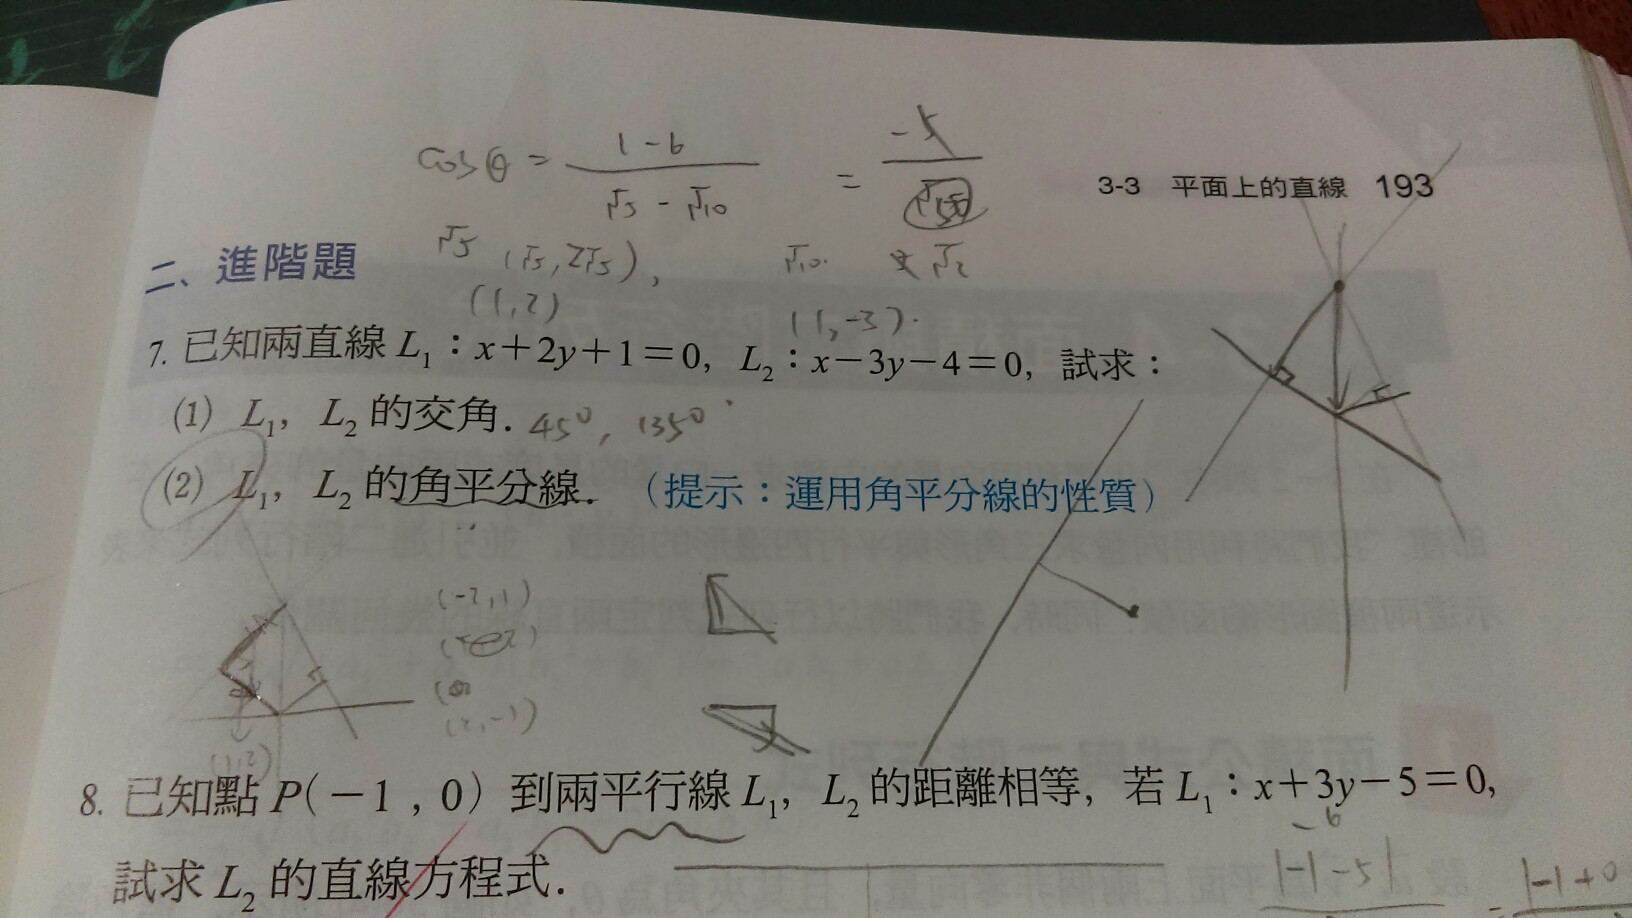 cosθ = 1-6 / √5 - √10 = -5
3-3 平面上的直線 193
√5 (√5, 2√5), √10. √2
二、進階題
(1, 2) (1, -3).
7. 已知兩直線 L₁：x+2y+1=0, L₂：x-3y-4=0, 試求：
(1) L₁, L₂ 的交角. 45°, 135°
(2) L₁, L₂ 的角平分線. （提示：運用角平分線的性質）
(-2, 1)
(2, -1)
(1, 2)
8. 已知點 P(-1, 0) 到兩平行線 L₁, L₂ 的距離相等, 若 L₁：x+3y-5=0,
-6
試求 L₂ 的直線方程式.
|-1-5|
|-1+0